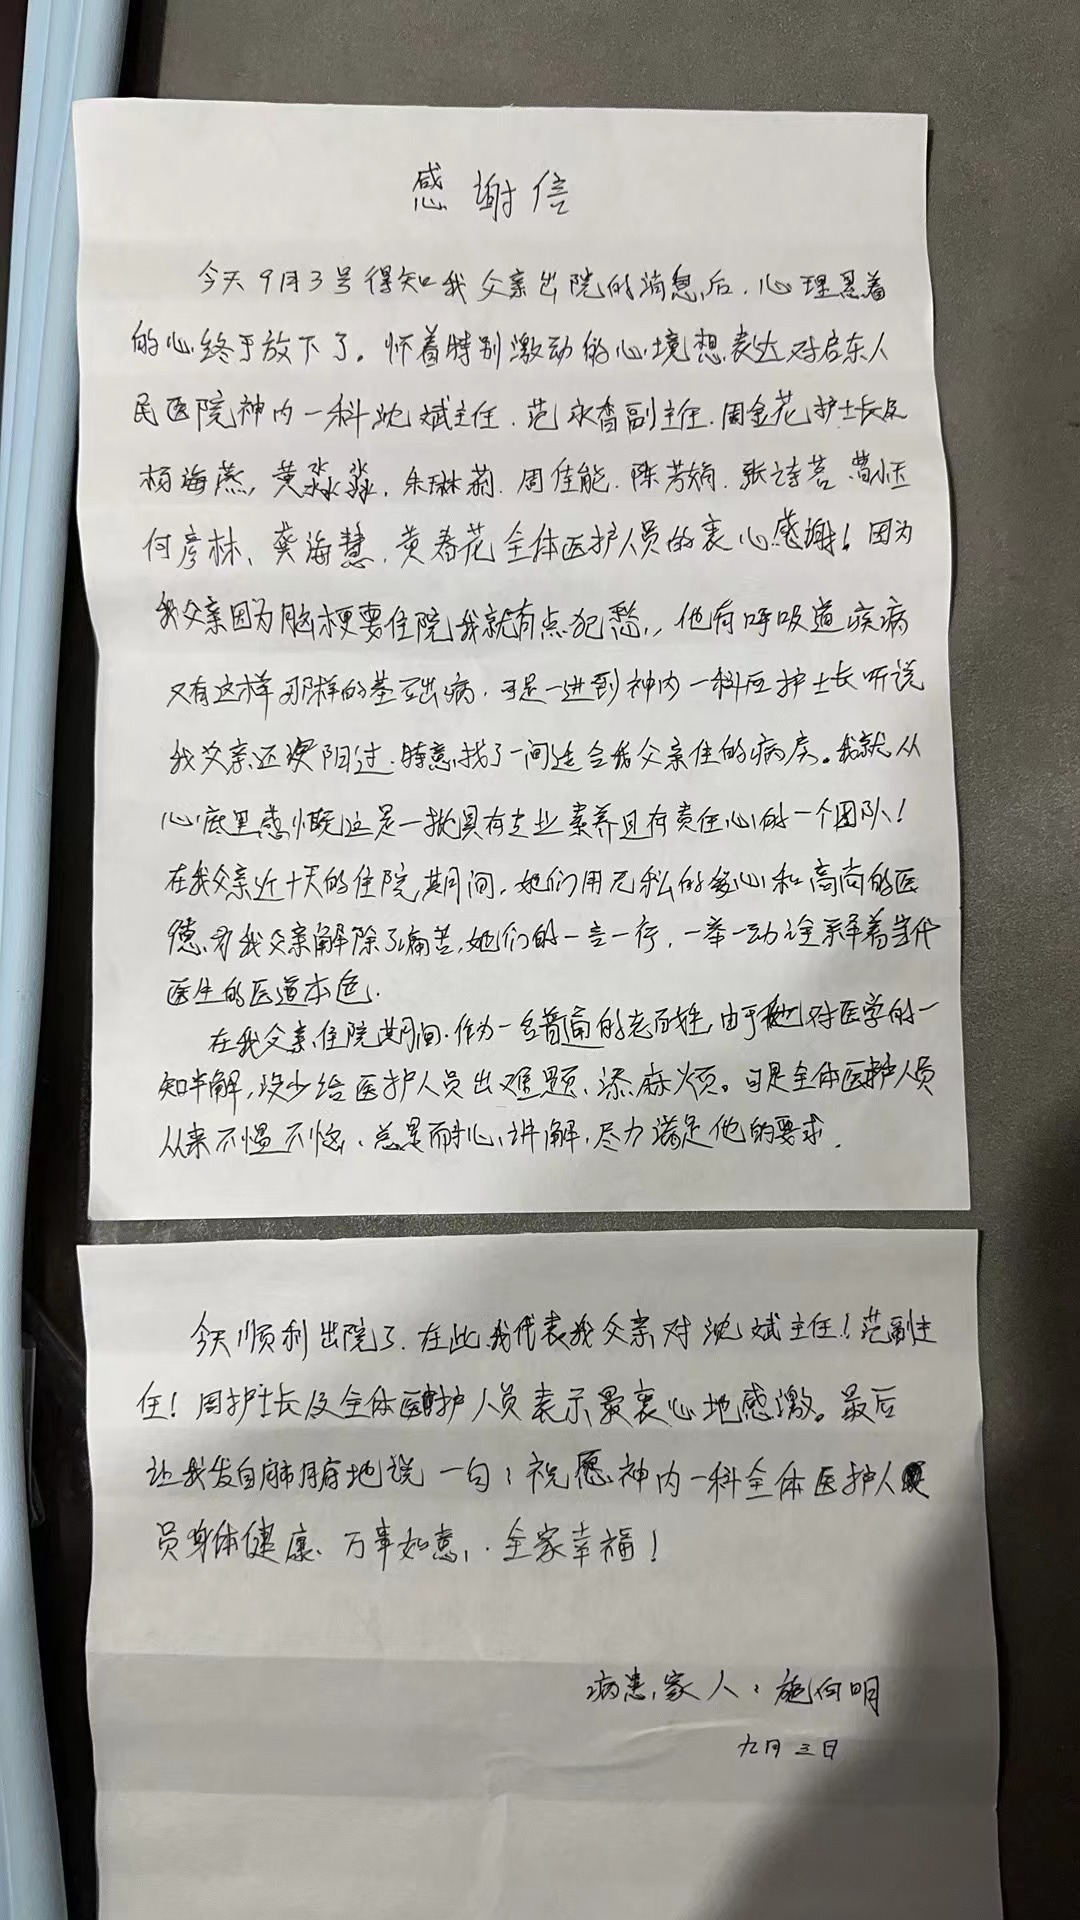 感谢信
今天9月3号得知我父亲出院的消息后，心理悬着
的心终于放下了。怀着特别激动的心境想表达对启东人
民医院神内一科沈斌主任、范永香副主任、周金花护士长及
杨海燕，黄淼淼、朱琳莉、周佳能、陈芳娟、张诗茗、曹
何彦林、龚海慧、黄春花全体医护人员的衷心感谢！因为
我父亲因为脑梗要住院我就有点犯愁，他有呼吸道疾病
又有这样那样的基础病，可是一进到神内一科后护士长听说
我父亲还没阳过，特意找了一间适合我父亲住的病房。我就从
心底里感慨这是一批具有专业素养且有责任心的一个团队！
在我父亲近十天的住院期间，她们用无私的爱心和高尚的医
德，为我父亲解除了痛苦，她们的一言一行，一举一动诠释着当代
医生的医道本色。
在我父亲住院期间，作为一名普通的老百姓，由于他对医学的一
知半解，没少给医护人员出难题、添麻烦。可是全体医护人员
从来不愠不恼、总是耐心讲解，尽力满足他的要求。
今天顺利出院了，在此我代表我父亲对沈斌主任！范副主
任！周护士长及全体医护人员表示最衷心地感激。最后
让我发自肺腑地说一句：祝愿神内一科全体医护人
员身体健康、万事如意，全家幸福！
病患家人：施向明
九月三日